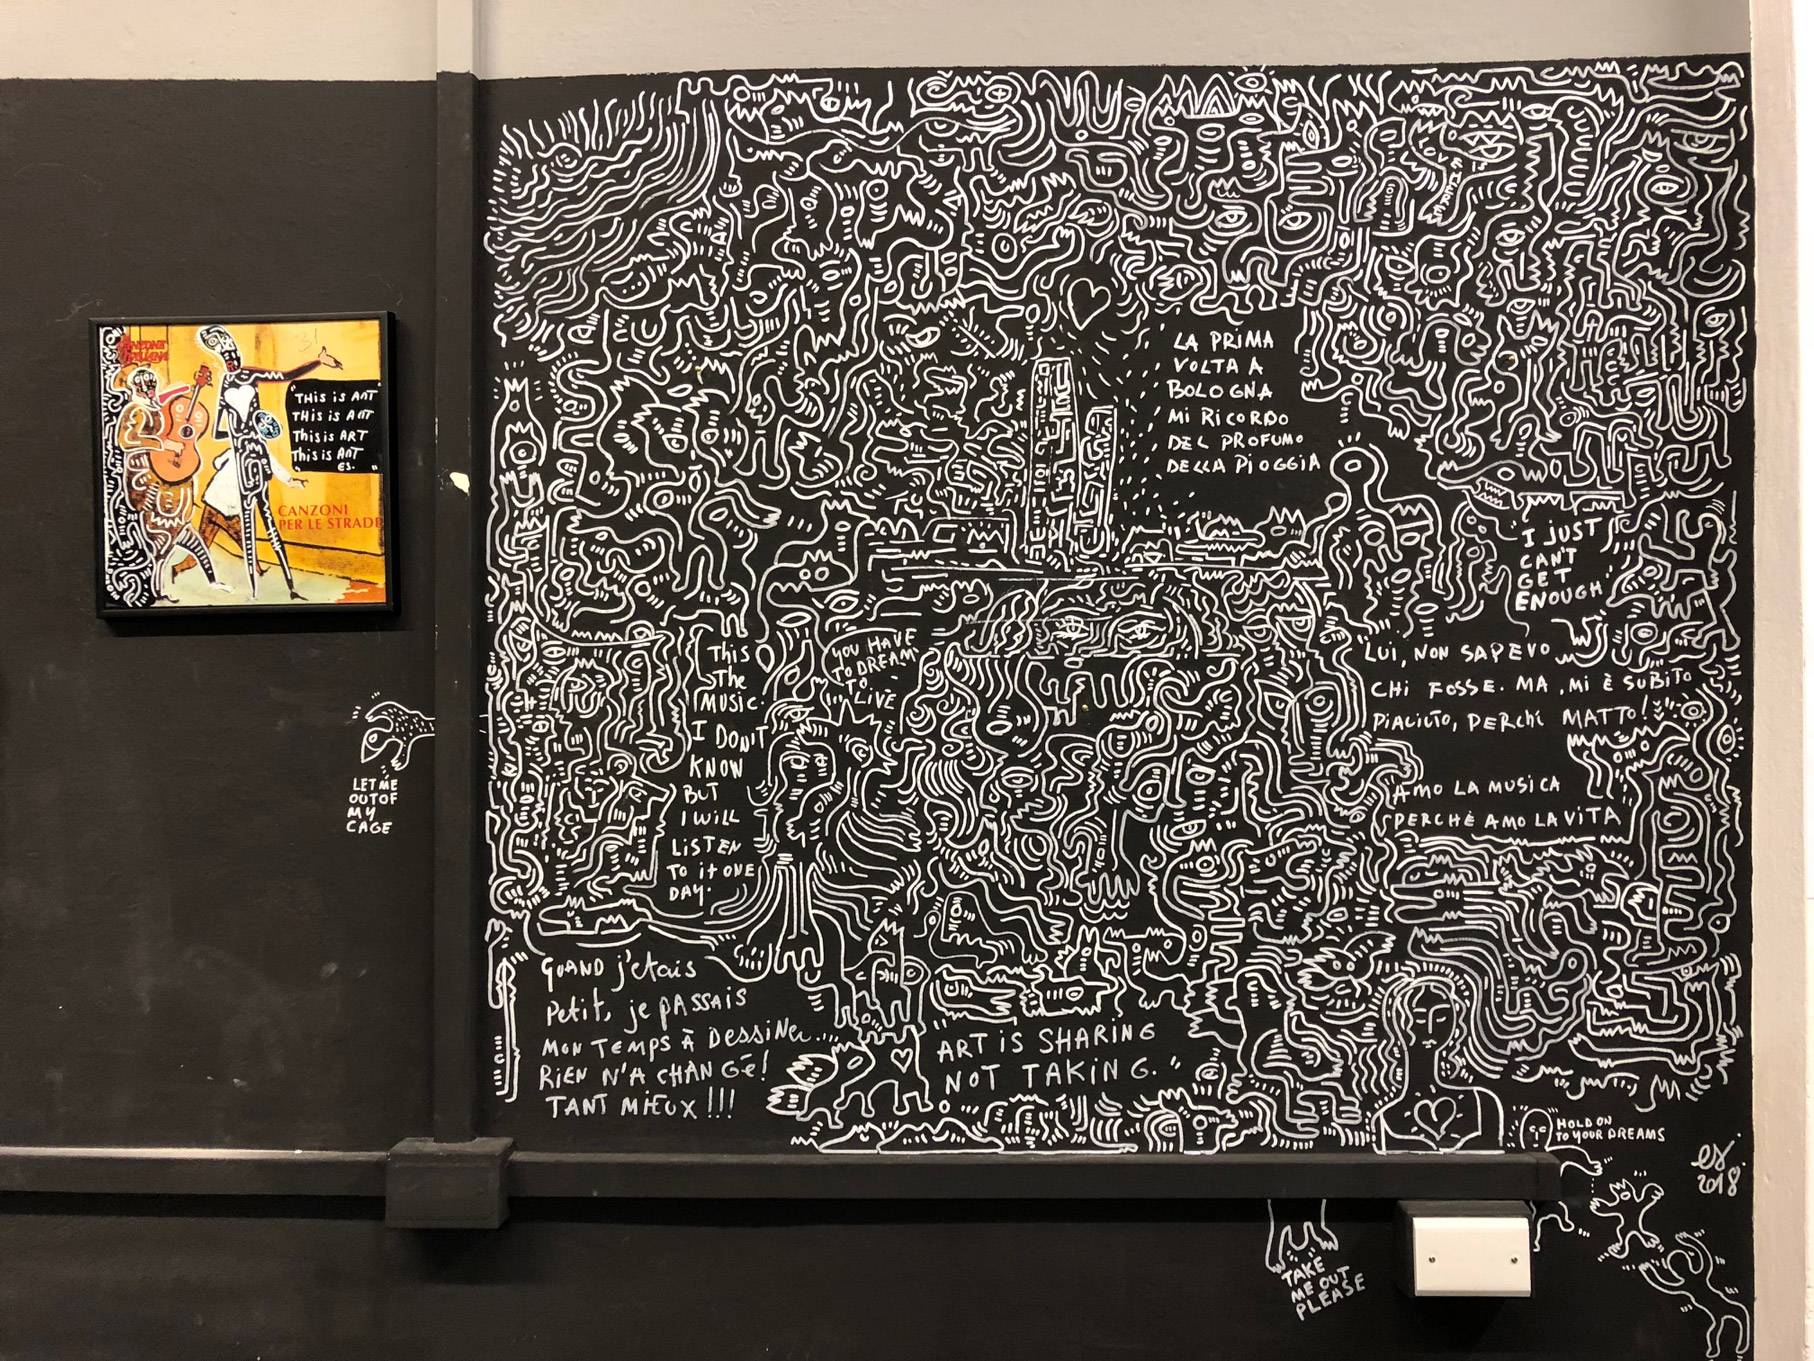 THIS is ART
THIS is ART
This is ART
This is ART
es.
CANZONI
PER LE STRADE
LET ME
OUT OF
MY
CAGE
LA PRIMA
VOLTA A
BOLOGNA
MI RICORDO
DEL PROFUMO
DELLA PIOGGIA
I JUST
CAN'T
GET
ENOUGH
YOU HAVE
TO DREAM
TO
LIVE
This
The
MUSIC.
I DON'T
KNOW
BUT
I WILL
LISTEN
TO it ONE
DAY.
LUI, NON SAPEVO
CHI FOSSE. MA, MI È SUBITO
PIACIUTO, PERCHÉ MATTO!
AMO LA MUSICA
PERCHÈ AMO LA VITA
QUAND j'etais
Petit, je PASSAIS
MON TEMPS À DESSINER...
RIEN N'A CHANGÉ!
TANT MIEUX !!!
ART iS SHARING
NOT TAKING."
HOLD ON
TO YOUR DREAMS
es
2018
TAKE
ME OUT
PLEASE